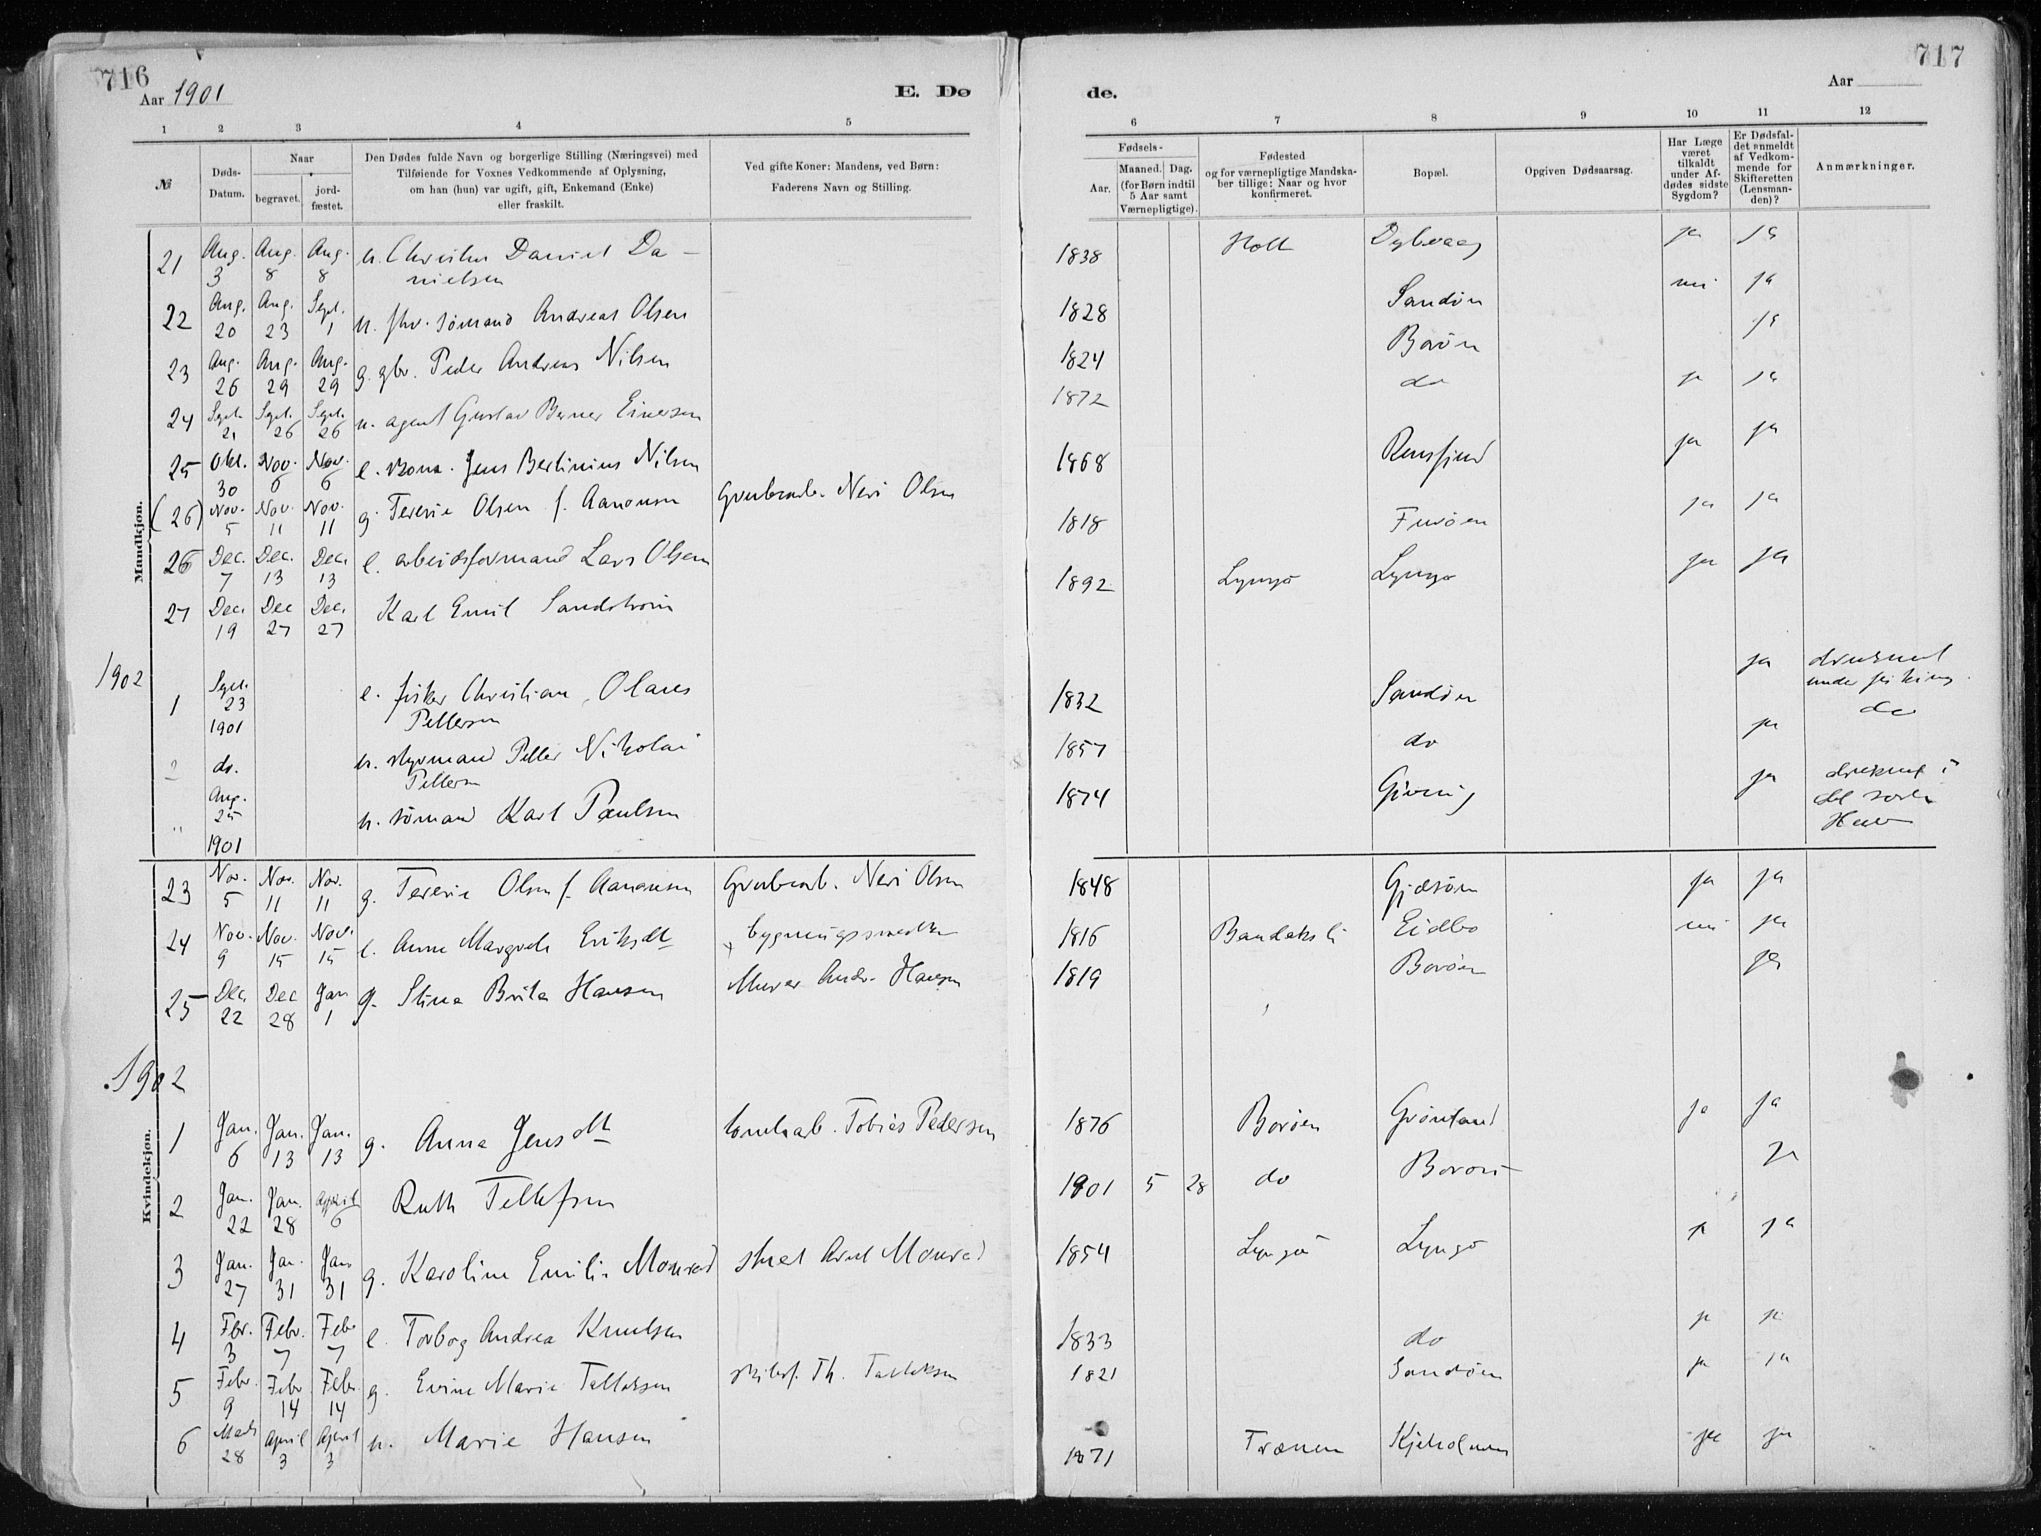 716
Aar 1901
E. Dø
de.
717
Aar
1 2 3 4 5 6 7 8 9 10 11 12
№
Døds-
Datum.
Naar
begravet.
jord-
fæstet.
Den Dødes fulde Navn og borgerlige Stilling (Næringsvei) med
Tilføiende for Voxnes Vedkommende af Oplysning,
om han (hun) var ugift, gift, Enkemand (Enke)
eller fraskilt.
Ved gifte Koner: Mandens, ved Børn:
Faderens Navn og Stilling.
Fødsels-
Aar.
Maaned. Dag.
(for Børn indtil
5 Aar samt
Værnepligtige).
Fødested
og for værnepligtige Mandska-
ber tillige: Naar og hvor
konfirmeret.
Bopæl.
Opgiven Dødsaarsag.
Har Læge
været
tilkaldt
under Af-
dødes sidste
Sygdom?
Er Dødsfal-
det anmeldt
af Vedkom-
mende for
Skifteretten
(Lensman-
den)?
Anmærkninger.
Mandkjøn.
21 Aug. 3 Aug. 8 Aug. 8 Daniel Da-
nielsen 1838 Holt Dybvaag ja ja
22 Aug. 20 Aug. 23 Sept. 1 u. fhv. sømand Andreas Olsen 1828 Sandøn nei ja
23 Aug. 26 Aug. 29 Aug. 29 g. gbr. Peder Andreas Nilsen 1824 Borøn ja
24 Sept. 21 Sept. 26 Sept. 26 u. agent Gustav Berner Einersen 1872 do ja ja
25 Okt. 30 Nov. 6 Nov. 6 e. Jens Bertinius Nilsen 1868 ja ja
(26) Nov. 5 Nov. 11 Nov. 11 g. Teresie Olsen f. Aanonsen Grubearb. Neri Olsen 1818 Furøen ja ja
26 Dec. 7 Dec. 13 Dec. 13 e. arbeidsformand Lars Olsen 1892 Lyngø Lyngø ja ja
27 Dec. 19 Dec 27 Dec. 27 Karl Emil Sandstrøm
1902
1 Sept. 23 1901 e. fisker Christian Olaus
Pettersen 1832 Sandøn ja druknet
under fiskning.
2 do. u. styrmand Petter Nikolai
Pettersen 1857 do ja do
" Aug. 25 1901 u. sømand Karl Paulsen 1874 Gjeving ja druknet i
det sorte
Hav
23 Nov. 5 Nov. 11 Nov. 11 g. Teresie Olsen f. Aanonsen Grubearb. Neri Olsen 1848 Gjesøen ja ja
24 Nov. 9 Nov. 15 Nov. 15 e. Anne Margrethe Eriksdt 1816 Bandaksli Eidbo nei ja
25 Dec. 22 Dec 28 Jan 1 g. Stina Brita Hansen Murer Andr. Hansen 1819 Borøen ja
Kvindekjøn.
1902
1 Jan. 6 Jan. 13 Jan. 13 g. Anna Jensdtt Tobias Pedersen 1876 Borøen Grønland ja ja
2 Jan. 22 Jan. 28 April 6 Ruth Tellefsen 1901 5 28 do Borøen ja
3 Jan. 27 Jan. 31 Jan 31 g. Karoline Emilie Monrad Monrad 1854 Lyngør Lyngø ja ja
4 Fbr. 3 Febr. 7 Febr 7 e. Torborg Andrea Knutsen 1833 do ja ja
5 Febr. 9 Febr 14 Febr. 14 g. Evine Marie Tallaksen skibsf. Th. Tallaksen 1821 Sandøen ja ja
6 Marts 28 April 3 April 3 u. Marie Hansen 1871 Trænen Kjeholmen ja ja